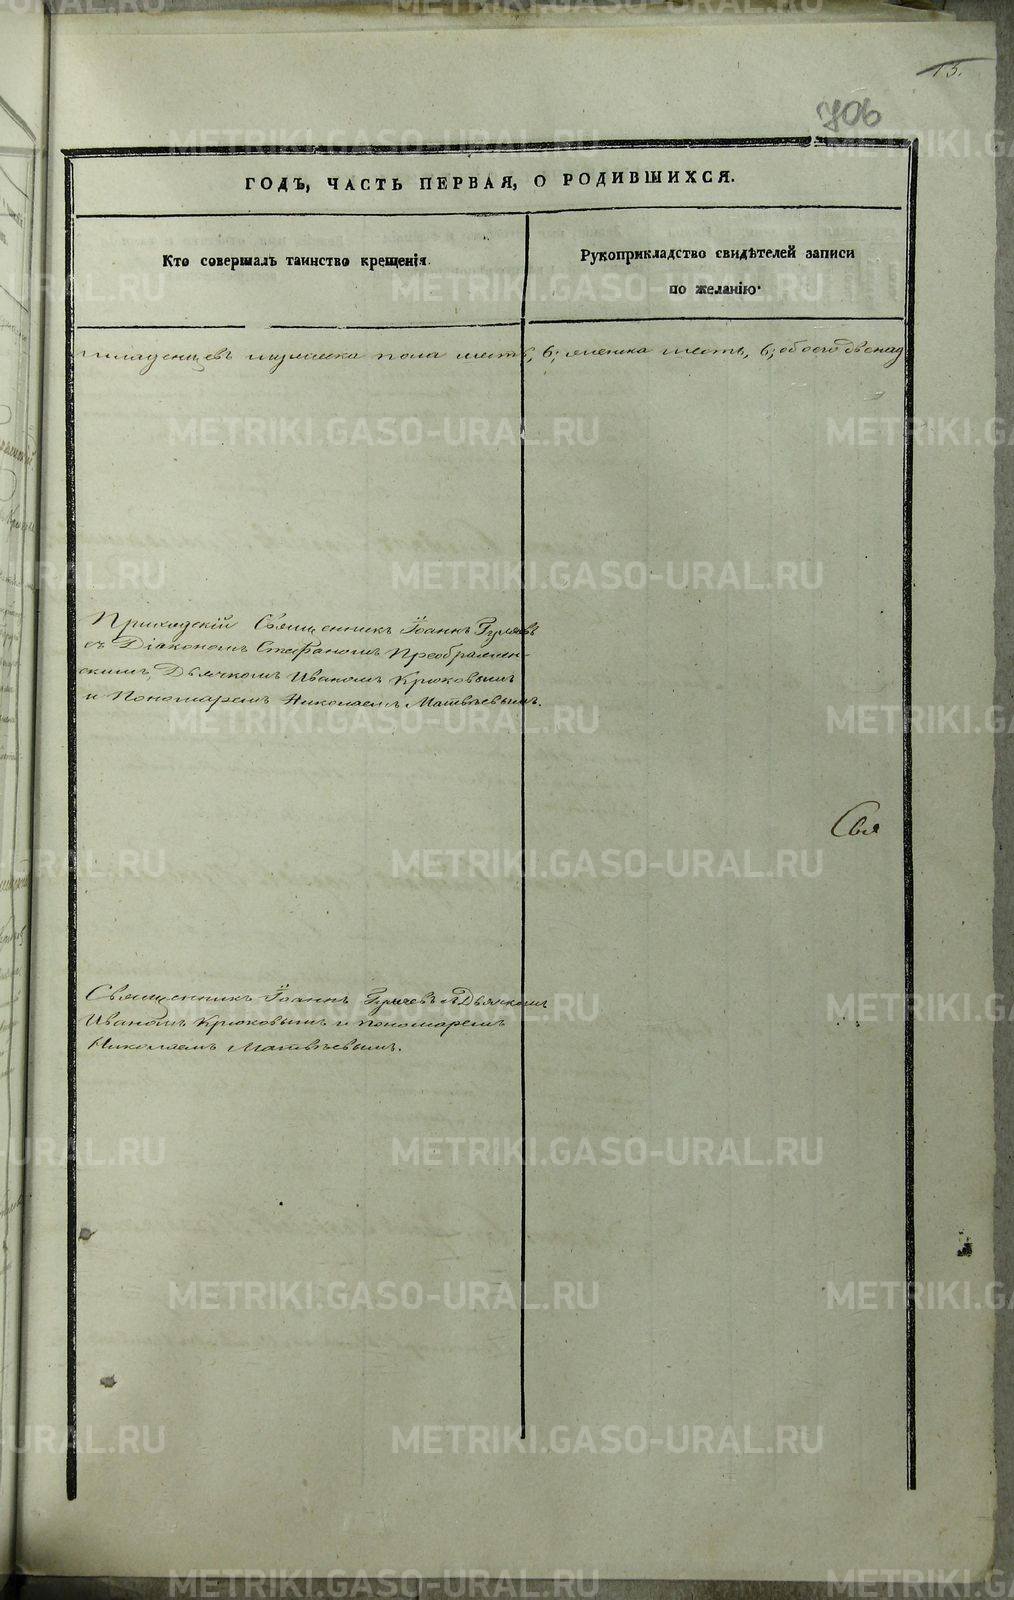 15.
706
ГОДЪ, ЧАСТЬ ПЕРВАЯ, О РОДИВШИХСЯ.
Кто совершалъ таинство крещенія.
Рукоприкладство свидѣтелей записи
по желанію.
младенцевъ мужеска пола шесть, 6; женска шесть, 6; обоего двенад
Приходскій Священникъ Іоаннъ Гуляевъ
съ Діакономъ Стефаномъ Преображен-
скимъ, Дьячкомъ Иваномъ Крюковымъ
и Пономаремъ Николаемъ Матвѣевымъ.
Свя
Священникъ Іоаннъ Гуляевъ съ Дьячкомъ
Иваномъ Крюковымъ и пономаремъ
Николаемъ Матвѣевымъ.
METRIKI.GASO-URAL.RU